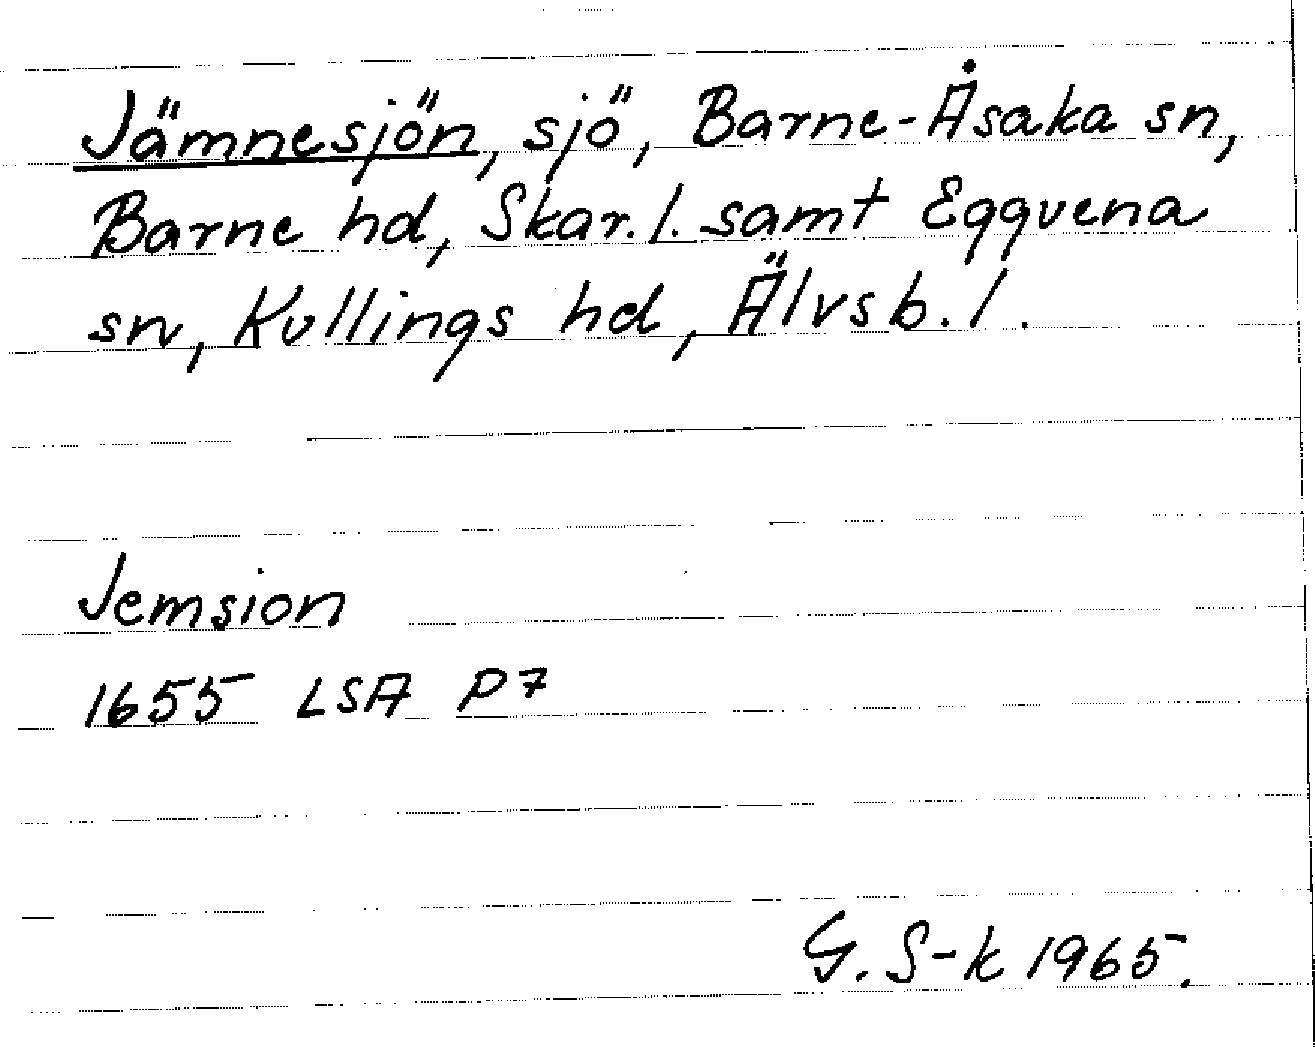 Jämnesjön, sjö, Barne-Åsaka sn,
Barne hd, Skar. l. samt Eggvena
sn, Kullings hd, Älvsb. l.
Jemsion
1655 LSA P7
G. S-k 1965.